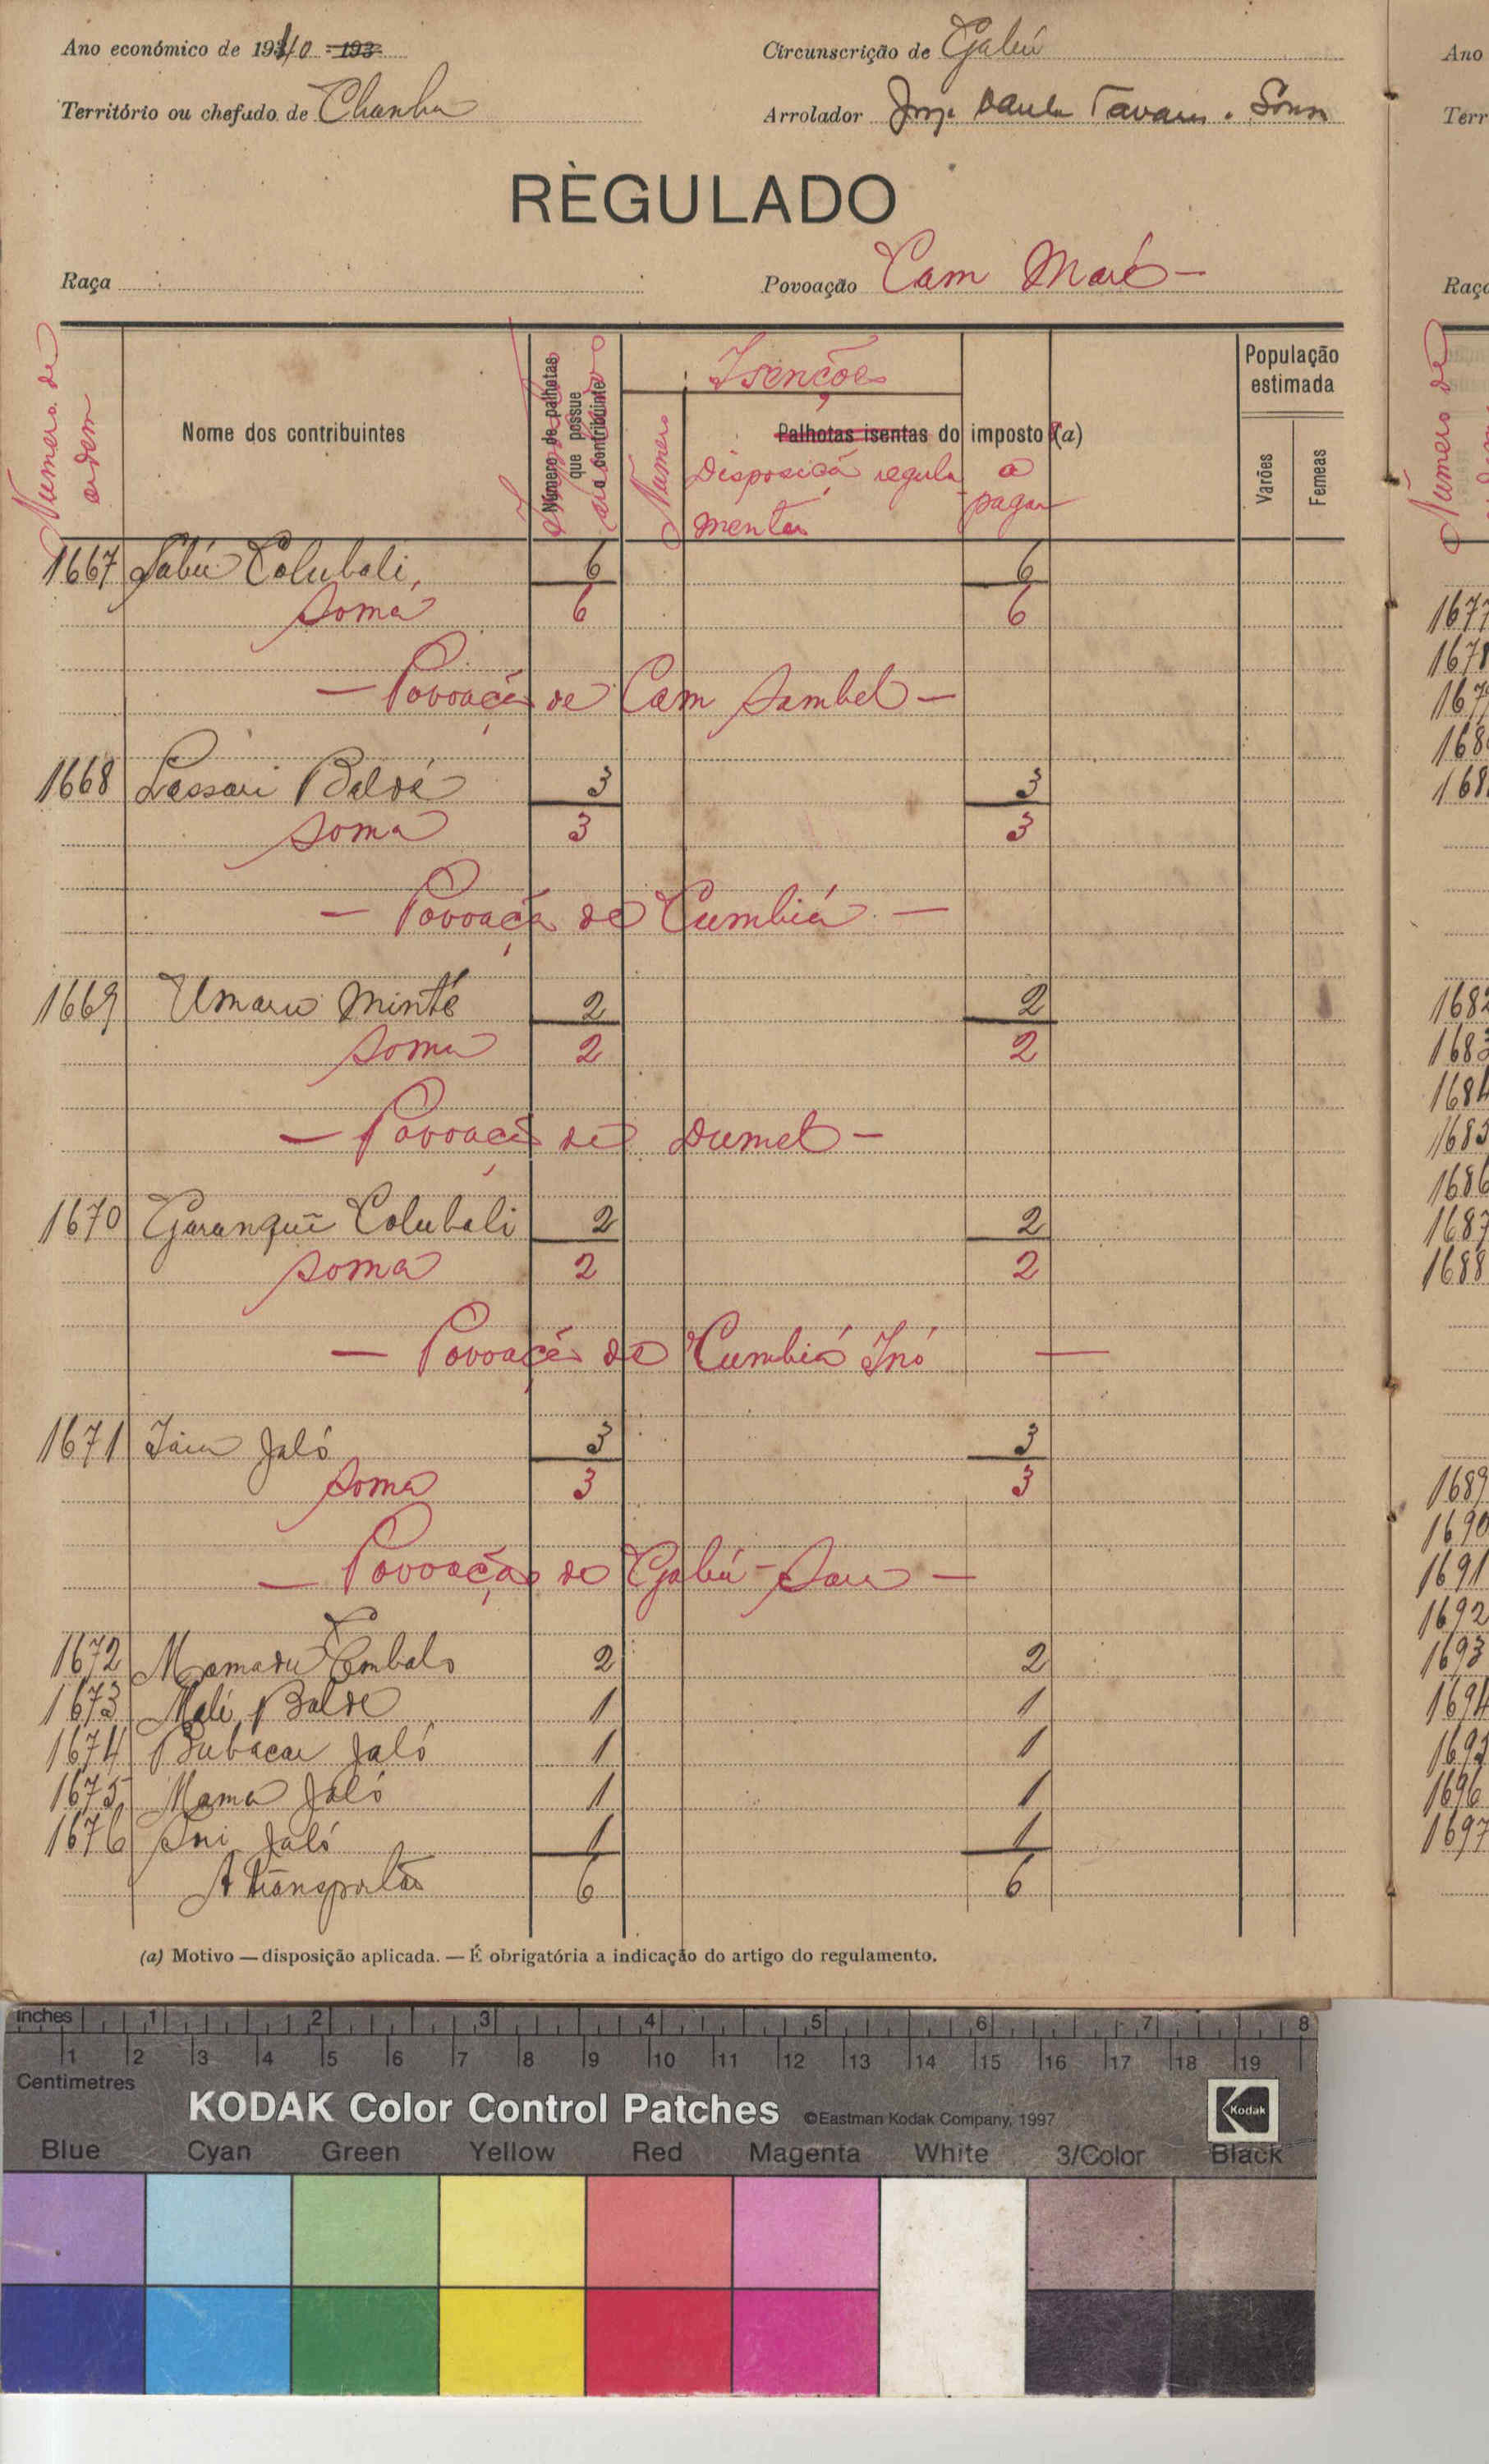 Ano económico de 1940 - 193
Circunscrição de Gabú
Território ou chefado de Chanha
Arrolador Jorge Paula Tavares e Sousa
REGULADO
Raça
Povoação Cam Maré -
Numero de ordem
Nome dos contribuintes
Número de palhotas que possue o contribuinte
Isenções
Numero
Palhotas isentas do imposto (a)
Disposição regulamentar
a pagar
População estimada
Varões
Femeas
1667 Sabú Colubali 6 6
Soma 6 6
- Povoação de Cam Sambel -
1668 Lassari Baldé 3 3
Soma 3 3
- Povoação de Cumbiá -
1669 Umaru Minté 2 2
Soma 2 2
- Povoação de Dumel -
1670 Garanqui Colubali 2 2
Soma 2 2
- Povoação de Cumbiá Inó -
1671 Jaló 3 3
Soma 3 3
- Povoação de Gabú-Sare -
1672 Mamadu Embalo 2 2
1673 Mali Balde 1 1
1674 Bubacar Jaló 1 1
1675 Mama Jaló 1 1
1676 Jaló 1 1
A transportar 6 6
(a) Motivo — disposição aplicada. — É obrigatória a indicação do artigo do regulamento.
Ano
Terr
Raça
Número de
1677
1682
1683
1684
1685
1686
1687
1688
1689
1690
1691
1692
1693
1694
1695
1696
1697
inches 1 2 3 4 5 6 7 8
1 2 3 4 5 6 7 8 9 10 11 12 13 14 15 16 17 18 19
Centimetres
KODAK Color Control Patches ©Eastman Kodak Company, 1997 Kodak
Blue Cyan Green Yellow Red Magenta White 3/Color Black